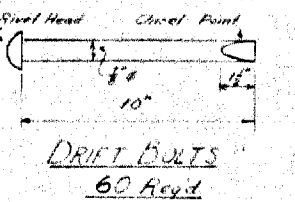 Rivet Head Chisel Point
1½"
10"
DRIFT BOLTS
60 Req'd